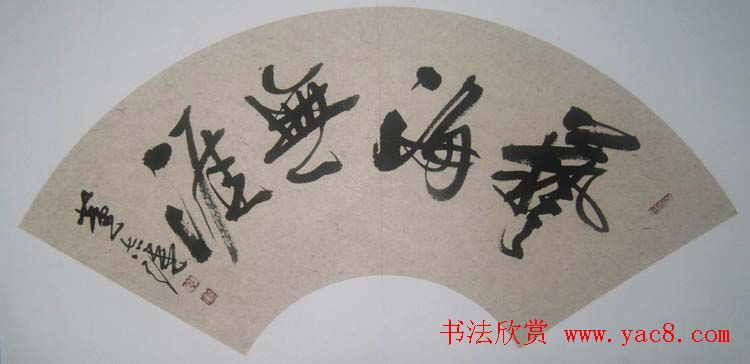 藝海無涯
书法欣赏 www.yac8.com